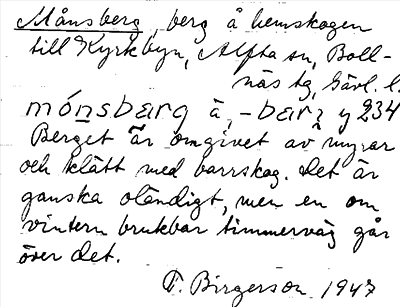 Månsberg, berg å hemskogen
till Kyrkbyn, Alfta sn, Boll-
näs tg, Gävl. l.
mónsbarg ä, -barʒ y 234
Berget är omgivet av myrar
och klätt med barrskog. Det är
ganska oländigt, men en om
vintern brukbar timmerväg går
över det.
F. Birgerson 1947